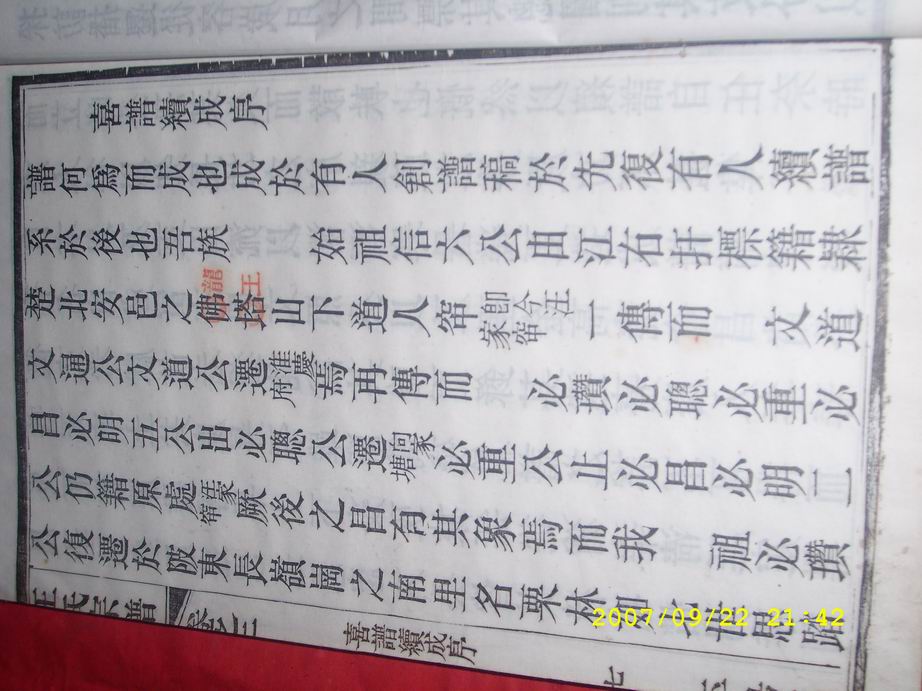 喜譜續成序
譜何為而成也成於有人創譜稿於先復有人纘譜
系於後也吾族 始祖信六公由江右扞標籍隸
楚北安邑之佛塔山下道人窂卽今汪家窂一傳而 文道
龍王
文通公文道公遷淮慶府焉再傳而 必瓚必聰必重必
昌必明五公出必聰公遷向家塘必重公止必昌必明二
公仍籍原處汪家窂厥後之昌有其象焉而我 祖必瓚
公復遷於陂東長嶺崗之南里名栗林 世思
氏宗譜
喜譜續成序
七
2007/09/22 21:42